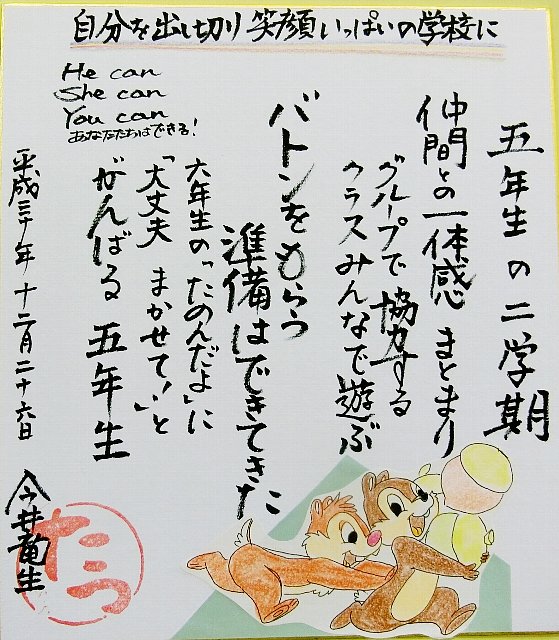 自分を出し切り 笑顔いっぱいの学校に
He can
She can
You can
あなたたちはできる!
五年生の二学期
仲間との一体感 まとまり
グループで 協力する
クラスみんなで遊ぶ
バトンをもらう
準備はできてきた
六年生の「たのんだよ」に
「大丈夫 まかせて!」と
がんばる 五年生
平成三十年 十二月二十六日
今井竜生
たつ